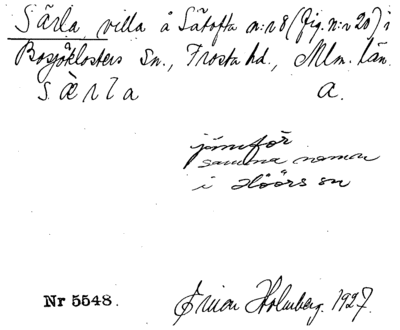 Särla, villa å Sätofta n:r 8 (fig. n:r 20) i
Bosjöklosters Sn., Frosta hd., Mlm. län.
sæ̀rla a.
jämför
samma namn
i Höörs sn
Nr 5548.
Holmberg. 1927.